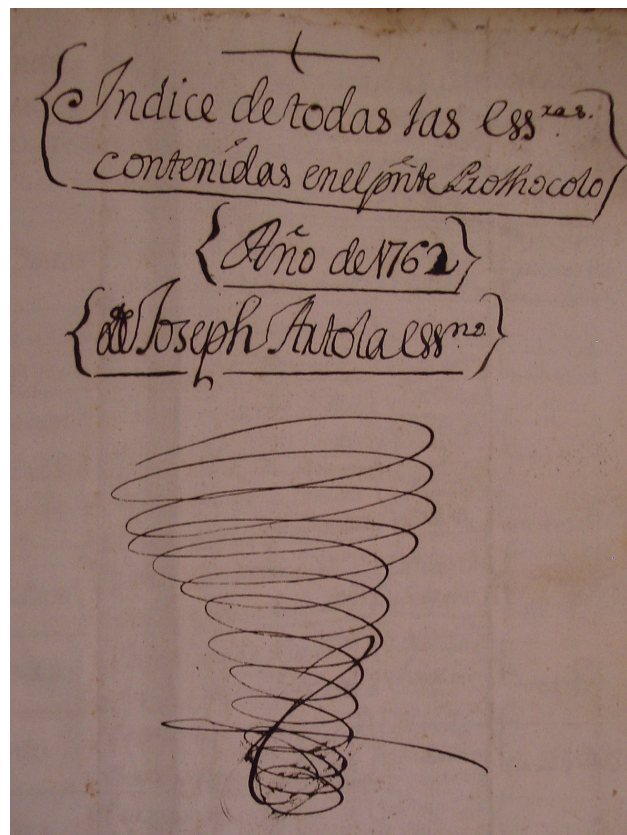 Indice de todas las Essras.
contenidas en el pñte Prothocolo
Año de 1762
de Joseph Artola essno.